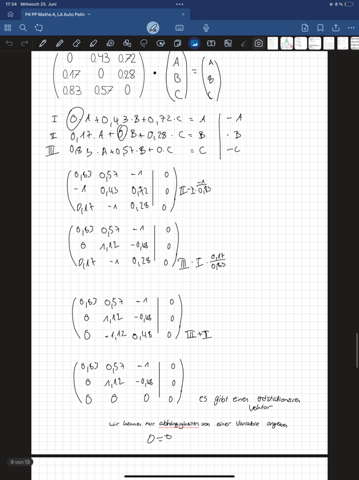 17:34 Mittwoch 25. Juni
P4 PP Mathe A, LA Auto Palin
0 0.43 0.72 A A
0.17 0 0.28 • B = B
0.83 0.57 0 C C
I 0·A+0,43·B+0,72·C = A | -A
II 0,17·A+0·B+0,28·C = B | -B
III 0,83·A+0,57·B+0·C = C | -C
0,83 0,57 -1 | 0
-1 0,43 0,72 | 0
0,17 -1 0,28 | 0
0,83 0,57 -1 | 0
0 1,12 -0,48 | 0
0,17 -1 0,28 | 0 III - I · 0,17/0,83
0,83 0,57 -1 | 0
0 1,12 -0,48 | 0
0 -1,12 0,48 | 0 III+II
0,83 0,57 -1 | 0
0 1,12 -0,48 | 0
0 0 0 | 0
es gibt einen
Vektor
wir können nur abhängigkeiten von einer Variable angeben
0=0
9 von 10